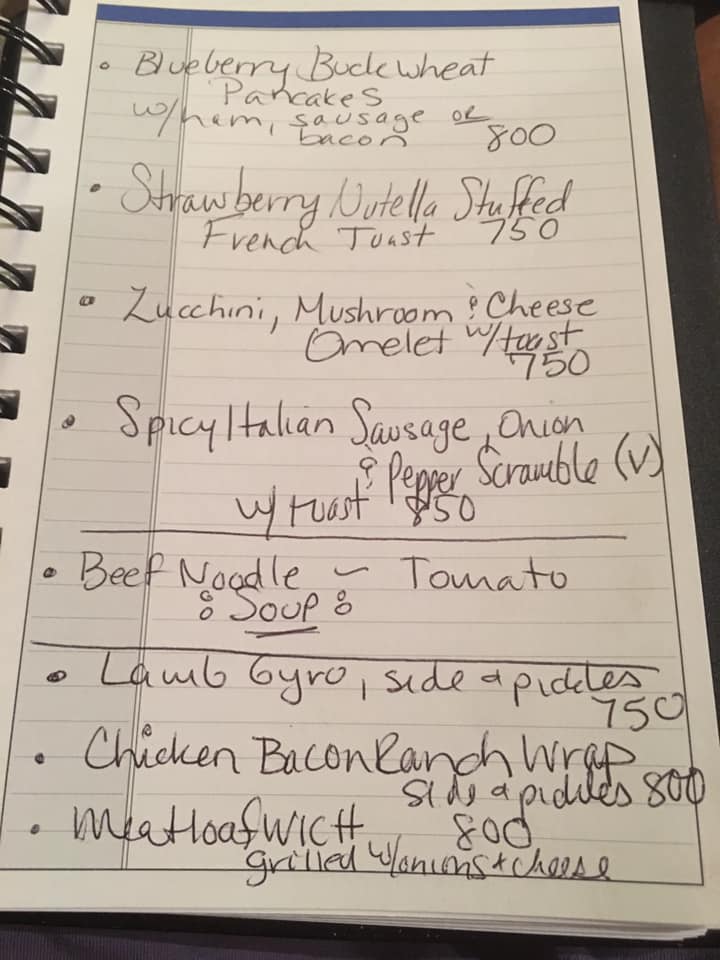 • Blueberry Buckwheat
Pancakes
w/ham, sausage or
bacon 800
• Strawberry Nutella Stuffed
French Toast 750
• Zucchini, Mushroom & Cheese
Omelet w/toast
750
• Spicy Italian Sausage, Onion
& Pepper Scramble (V)
w/ toast 850
• Beef Noodle ~ Tomato
Soup
• Lamb Gyro, side & pickles
750
• Chicken Bacon Ranch Wrap
side & pickles 800
• Meatloaf WICH 800
grilled w/onions + cheese